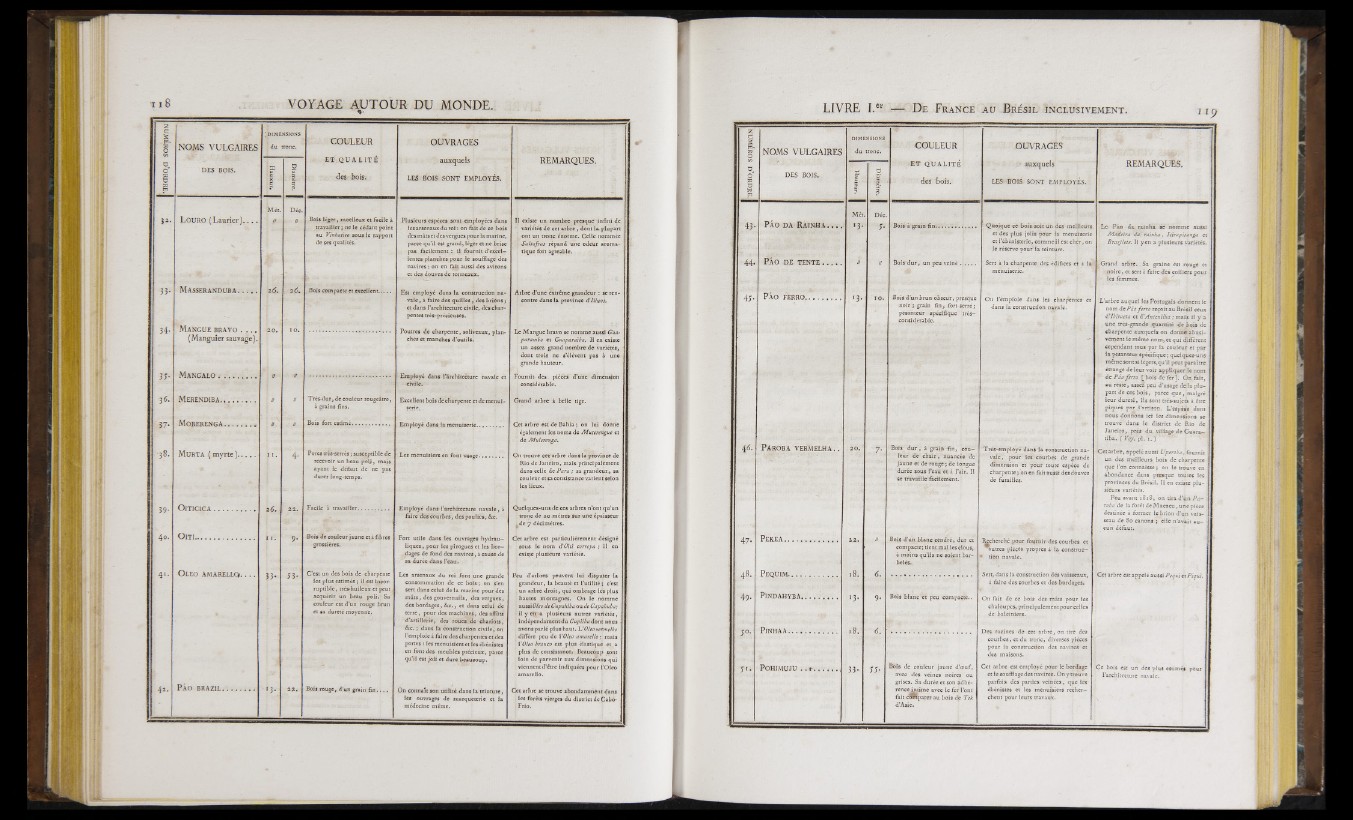 118
VOYAGE AUTOUR DU MONDE.
NUMÉROS D'ORDRE.
NOMS VULGAIRES
DES BOIS.
DIMENSIONS
du tronc.
Hauteur.
Diamètre.
COULEUR
ET QUALITÉ
des bois.
OUVRAGES
auxquels
LES BOIS SONT EMPLOYÉS.
REMARQUES.
Mèt.
Déc.
32.
LOURO (Laurier)....
Bois léger, excellent et facile à
travailler; ne le cédant point
au Vinhatico sous le rapport
de ses qualités.
Plusieurs espèces sont employées dans
les arsenaux du roi: on fait de ce bois
des mâts et des vergues pour la marine,
parce qu'il est grand, léger et ne brise
pas facilement: il fournit d'excel-
lentes planches pour le soufflage des
navires; on en fait aussi des avirons
et des douves de tonneaux.
Il existe un nombre presque infini de
variétés de cet arbre, dont la plupart
ont un tronc énorme. Celle nommée
Sassafras répand une odeur aroma-
tique fort agréable.
33.
MASSERANDUBA.....
26.
26.
Bois compacte et excellent.....
Est employé dans la construction na-
vale, à faire des quilles, des brions;
et dans l'architecture civile, des char-
pentes très-précieuses.
Arbre d'une extrême grandeur: se ren-
contre dans la province d'Ilheos.
34.
MANGUE BRAVO....
(Manguier sauvage).
20.
10.
Poutres de charpente, soliveaux, plan-
ches et manches d'outils.
Le Mangue bravo se nomme aussi Gua-
paranha et Guaparaiba. Il en existe
un assez grand nombre de variétés,
dont trois ne s'élèvent pas à une
grande hauteur.
35.
MANGALO.........
Employé dans l'architecture navale et
civile.
Fournit des pièces d'une dimension
considérable.
36.
MERENDIBA........
Très-dur, de couleur rougeâtre,
à grains fins.
Excellent bois de charpente et de menui-
serie.
Grand arbre à belle tige.
37.
MOBERENGA........
Bois fort estimé.............
Employé dans la menuiserie.........
Cet arbre est de Bahia: on lui donne
également les noms de
38.
MURTA (myrte).....
11.
4.
Fibres très-serrés; susceptible de
recevoir un beau poli, mais
ayant le défaut de ne pas
durer long-temps.
Les menuisiers en font usage........
On trouve cet arbre dans la province de
Rio de Janeiro, mais principalement
dans celle de Para: sa grandeur, sa
couleur et sa consistance varient selon
les lieux.
39.
OITICICA...........
26.
22.
Facile à travailler...........
Employé dans l'architecture navale, à
faire des courbes, des poulies, &c.
Quelques-uns de ces arbres n'ont qu'un
tronc de 20 mètres sur une épaisseur
de 7 décimètres.
40.
OITI...............
11.
9.
Bois de couleur jaune et à fibres
grossières.
Fort utile dans les ouvrages hydrau-
liques, pour les pirogues et les bor-
dages de fond des navires, à cause de
sa durée dans l'eau.
Cet arbre est particulièrement désigné
sous le nom d'Oiti coroya: il en
existe plusieurs variétés.
41.
OLEO AMARELLO....
33.
53.
C'est un des bois de charpente
les plus estimés; il est incor-
ruptible, très-huileux et peut
acquérir un beau poli. Sa
couleur est d'un rouge brun
et sa dureté moyenne.
Les arsenaux du roi font une grande
consommation de ce bois: on s'en
sert dans celui de la marine pour des
mâts, des gouvernails, des vergues,
des bordages, &c., et dans celui de
terre, pour des machines, des affûts
d'artillerie, des roues de chariots,
&c.; dans la construction civile, on
l'emploie à faire des charpentes et des
portes: les menuisiers et les ébénistes
en font des meubles précieux, parce
qu'il est joli et dure beaucoup.
Peu d'arbres peuvent lui disputer la
grandeur, la beauté et l'utilité; c'est
un arbre droit, qui ombrage les plus
hautes montagnes. On le nomme
aussi
il y en a plusieurs autres variétés,
indépendamment du Copahu dont nous
avons parlé plus haut. L'Oleo vermelho
diffère peu de l'Oleo amarello; mais
l'Oleo branco est plus élastique et a
plus de consistance. Beaucoup sont
loin de parvenir aux dimensions qui
viennent d'être indiquées pour l'Oleo
amarello.
42.
PÀO BRAZIL........
13.
22.
Bois rouge, d'un grain fin....
On connaît son utilité dans la teinture,
les ouvrages de marqueterie et la
médecine même.
Cet arbre se trouve abondamment dans
les forêts vierges du district de Cabo-
Frio.
LIVRE I.er — DE FRANCE AU BRÉSIL INCLUSIVEMENT.
119
NUMÉROS D'ORDRE.
NOMS VULGAIRES
DES BOIS.
DIMENSIONS
du tronc.
Hauteur.
Diamètre.
COULEUR
ET QUALITÉ
des bois.
OUVRAGES
auxquels
LES BOIS SONT EMPLOYÉS.
REMARQUES.
Mèt.
Déc.
43.
PÀO DA RAINHA....
13.
5.
Bois à grain fin.............
Quoique ce bois soit un des meilleurs
et des plus jolis pour la menuiserie
et l'ébénisterie, comme il est cher, on
le réserve pour la teinture.
Le Pào da rainha se nomme aussi
Madeira da rainha, et
Il y en a plusieurs variétés.
44.
PÀO DE TENTE.....
Bois dur, un peu veiné.......
Sert à la charpente des édifices et à la
menuiserie.
Grand arbre. Sa graine est rouge et
noire, et sert à faire des colliers pour
les femmes.
45.
PÀO FERRO.........
13.
10.
Bois d'un brun obscur, presque
noir; grain fin, fort serré;
pesanteur spécifique très-
considérable.
On l'emploie dans les charpentes et
dans la construction navale.
L'arbre auquel les Portugais donnent le
nom de Pào ferro reçoit au Brésil ceux
d' et d' : mais il y a
une très-grande quantité de bois de
charpente auxquels on donne abusi-
vement le même nom, et qui diffèrent
cependant tous par la couleur et par
la pesanteur spécifique: quelques-uns
même sont si légers, qu'il peut paraître
étrange de leur voir appliquer le nom
de Pào ferro [bois de fer]. On fait,
au reste, assez peu d'usage de la plu-
part de ces bois, parce que, malgré
leur dureté, ils sont très-sujets à être
piqués par l'artison. L'espèce dont
nous donnons ici les dimensions se
trouve dans le district de Rio de
Janeiro, près du village de
46.
PAROBA VERMELHA..
20.
7.
Bois dur, à grain fin, cou-
leur de chair, nuancée de
jaune et de rouge; de longue
durée sous l'eau et à l'air. Il
se travaille facilement.
Très-employé dans la construction na-
vale, pour les courbes de grande
dimension et pour toute espèce de
charpente; on en fait aussi des douves
de futailles.
Cet arbre, appelé aussi , fournit
un des meilleurs bois de charpente
que l'on connaisse; on le trouve en
abondance dans presque toutes les
provinces du Brésil. Il en existe plu-
sieurs variétés.
Peu avant 1818, on tira d'un Pa-
roba de la forêt de Macaco, une pièce
destinée à former le brion d'un vais-
seau de 80 canons; elle n'avait au-
cun défaut.
47.
PEKEA.............
22.
Bois d'un blanc cendré, dur et
compacte; tient mal les clous,
à moins qu'ils ne soient bar-
belés.
Recherché pour fournir des courbes et
autres pièces propres à la construc-
tion navale.
48.
PEQUIM............
18.
6.
Sert, dans la construction des vaisseaux,
à faire des courbes et des bordages.
Cet arbre est appelé aussi Pequi et Piqui.
49.
PINDAHYBA........
13.
9.
Bois blanc et peu compacte...
On fait de ce bois des mâts pour les
chaloupes, principalement pour celles
de baleiniers.
50.
PINHAA............
18.
6.
Des racines de cet arbre, on tire des
courbes, et du tronc, diverses pièces
pour la construction des navires et
des maisons.
51.
POHIMUJU.........
33.
55.
Bois de couleur jaune d'œuf,
avec des veines noires ou
grises. Sa durée et son adhé-
rence intime avec le fer l'ont
fait comparer au bois de Tek
d'Asie.
Cet arbre est employé pour le bordage
et le soufflage des navires. On y trouve
parfois des parties veinées, que les
ébénistes et les menuisiers recher-
chent pour leurs travaux.
Ce bois est un des plus estimés pour
l'architecture navale.